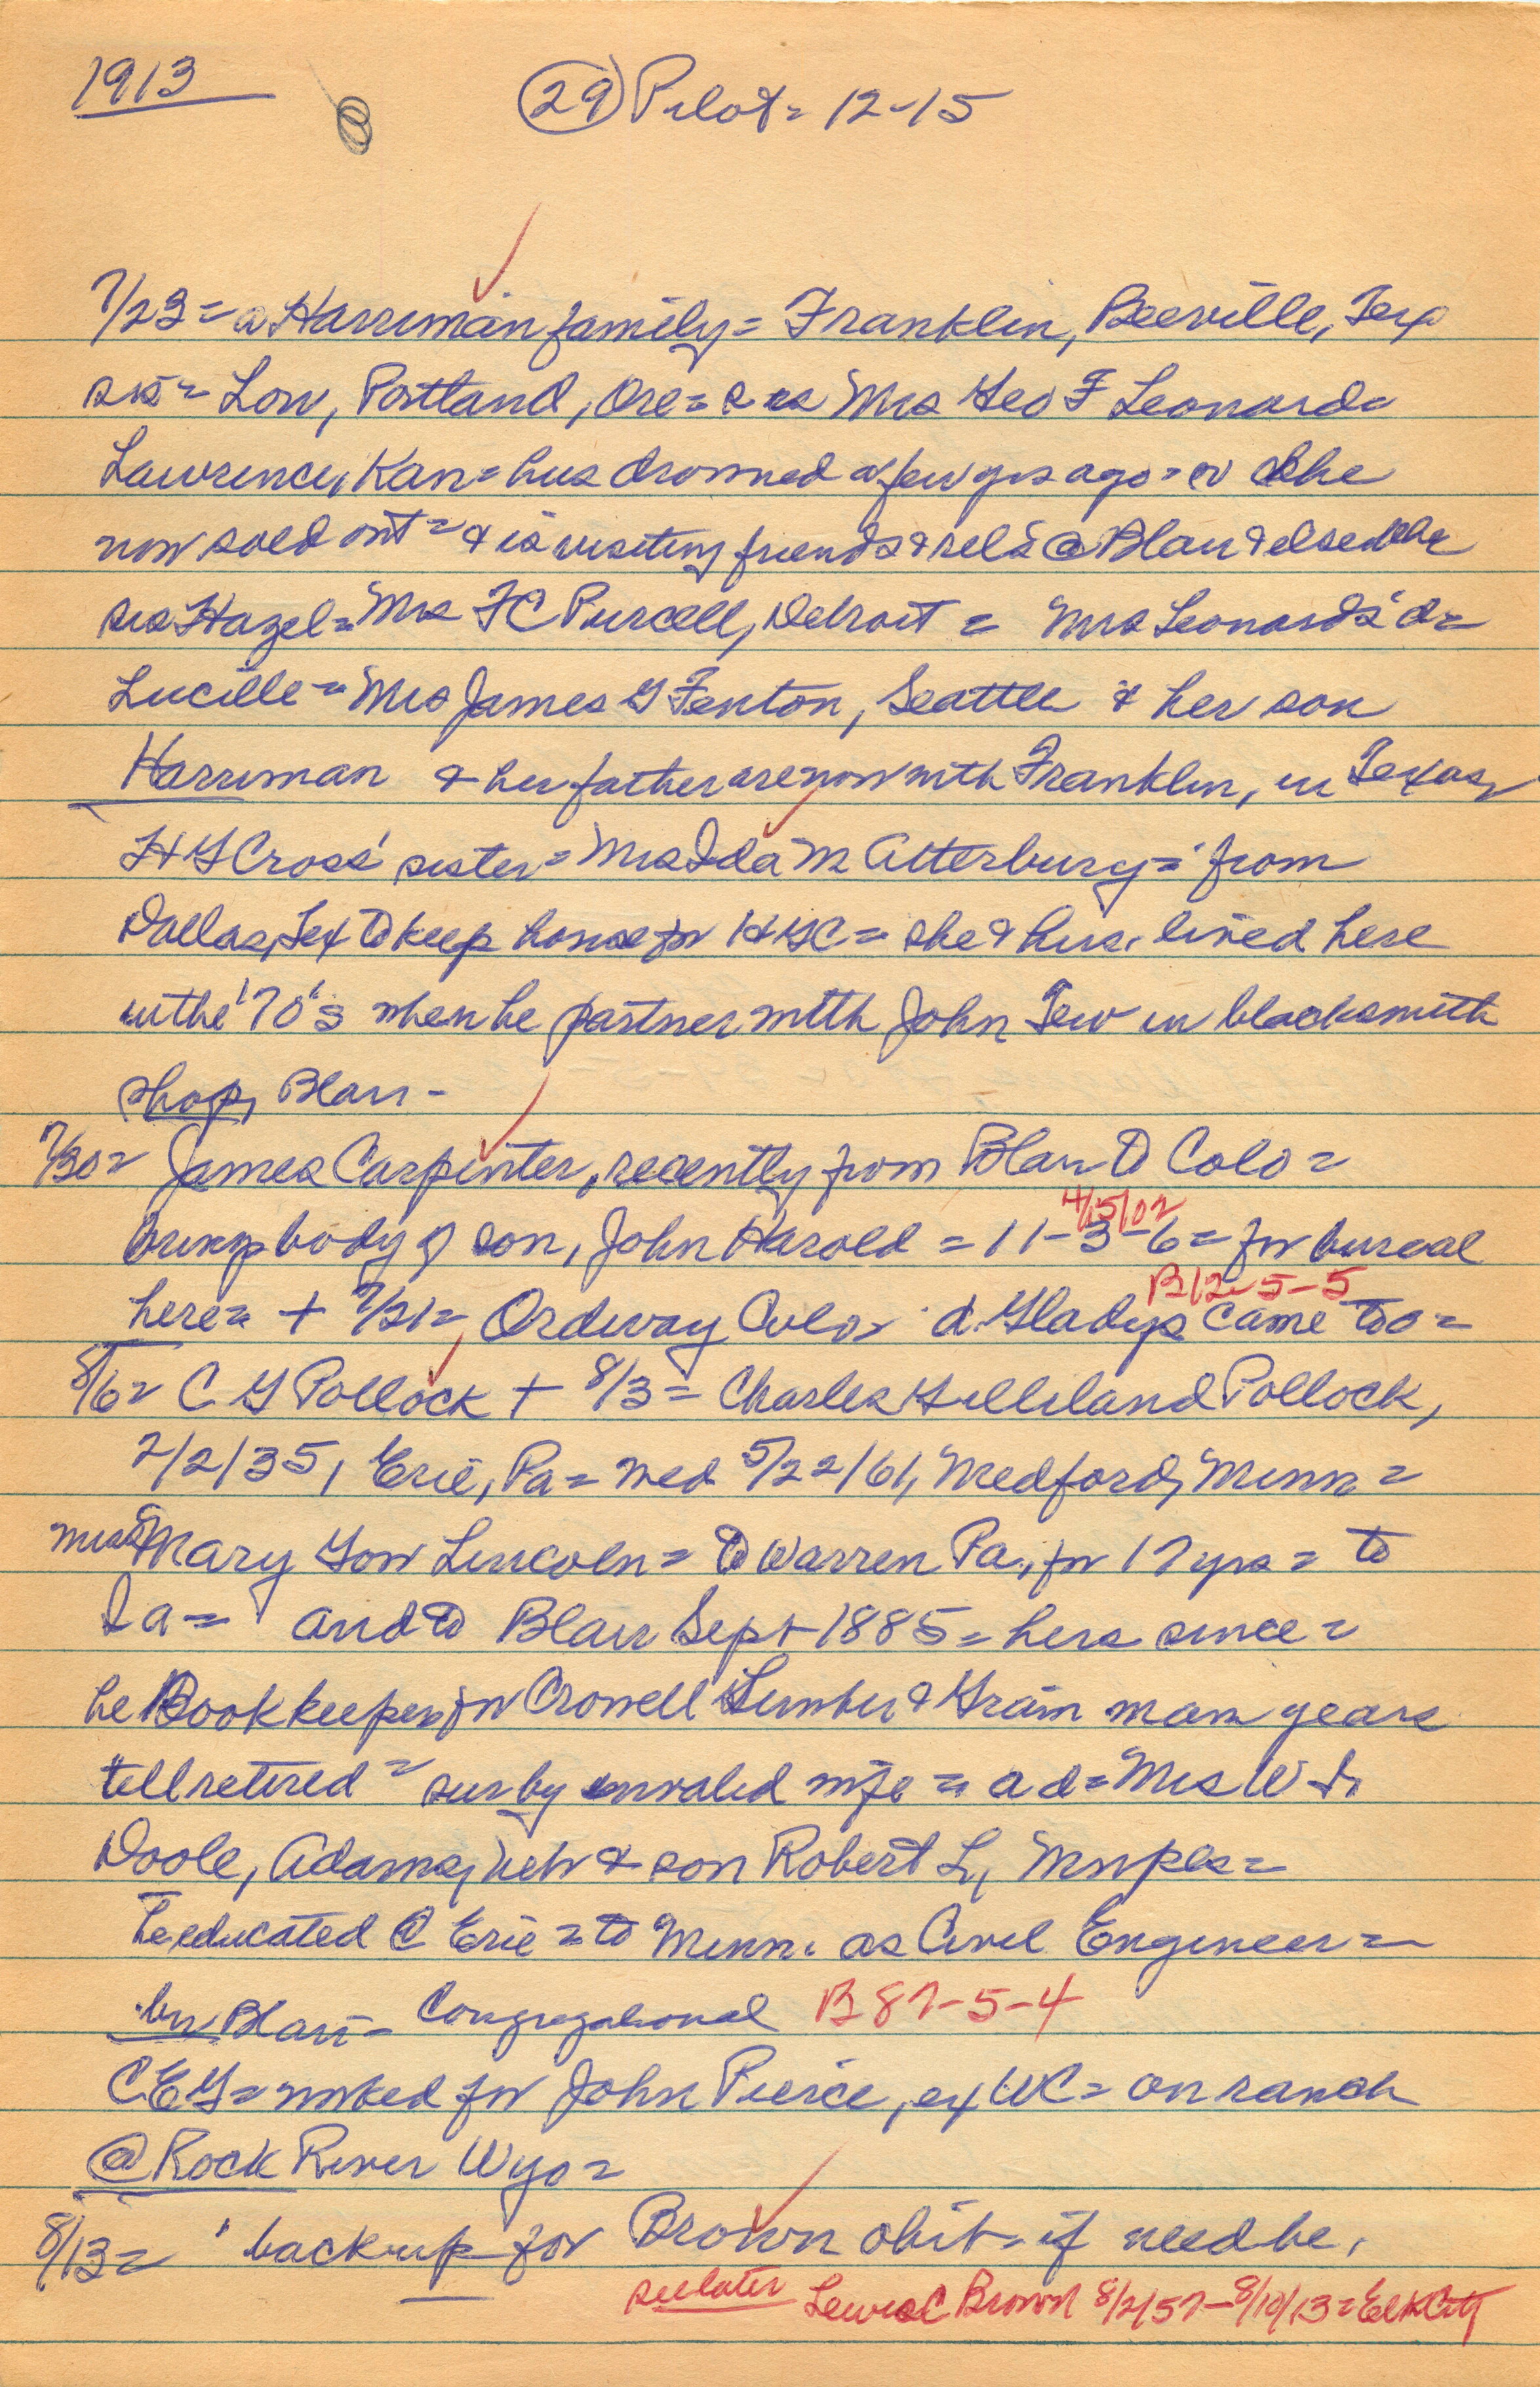 1913
(29) Pilot = 12-15
7/23 = a Harriman family = Franklin, Beeville, Tex
sis = Low, Portland, Ore = Mrs Geo F Leonard =
Lawrence, Kan = hus drowned a few yrs ago = she
now sold out = & is visiting friends & rels @ Blair & elsewhe
sis Hazel = Mrs FC Purcell, Detroit = Mrs Leonard's d =
Lucille = Mrs James G Fenton, Seattle & her son
Harriman & her father are now with Franklin, in Texas
HG Cross' sister = Mrs Ida M Atterbury = from
Dallas, Tex to keep house for HGC = she & hus. lived here
in the '70's when he partner with John Tew in blacksmith
shop, Blair -
7/30 = James Carpenter, recently from Blair to Colo =
bring body of son, John Harold = 11-3-6 = for burial
4/15/02
here = + 7/21 = Ordway Colo d. Gladys came too =
B12-5-5
8/6 = C G Pollock + 8/3 = Charles Gilliland Pollock,
2/2/35, Erie, Pa = wed 5/22/61, Medford, Minn =
Miss Mary Gow Lincoln = to Warren Pa., for 17 yrs = to
Ia = and to Blair Sept 1885 = here since =
he Bookkeeper for Crowell Lumber & Grain many years
till retired = sur by invalid wife = a d = Mrs W
Doole, Adams, Neb & son Robert L, Mnpls =
he educated @ Erie = to Minn. as Civil Engineer =
bu Blair - Congregational B 87-5-4
CEG = worked for John Pierce, ex WC = on ranch
@ Rock River Wyo =
8/13 = back-up for Brown obit - if need be.
see later Lewis C Brown 8/2/57-8/10/13 = Elk City